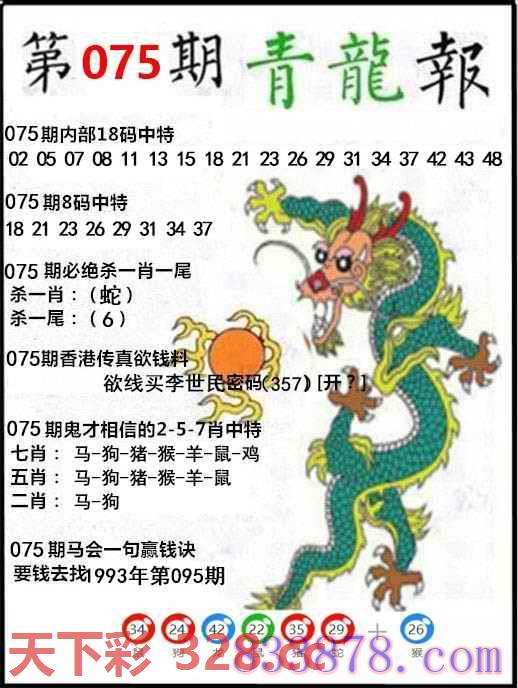 第075期 青龍報
075期内部18码中特
02 05 07 08 11 13 15 18 21 23 26 29 31 34 37 42 43 48
075期8码中特
18 21 23 26 29 31 34 37
075期必绝杀一肖一尾
杀一肖：（蛇）
杀一尾：（6）
075期香港传真欲钱料
欲线买李世民密码(357)[开?]
075期鬼才相信的2-5-7肖中特
七肖： 马-狗-猪-猴-羊-鼠-鸡
五肖： 马-狗-猪-猴-羊-鼠
二肖： 马-狗
075期马会一句赢钱诀
要钱去找1993年第095期
34 24 42 22 35 29 + 26
鼠 狗 龙 鼠 猪 蛇 猴
天下彩 328.cc
838878.com